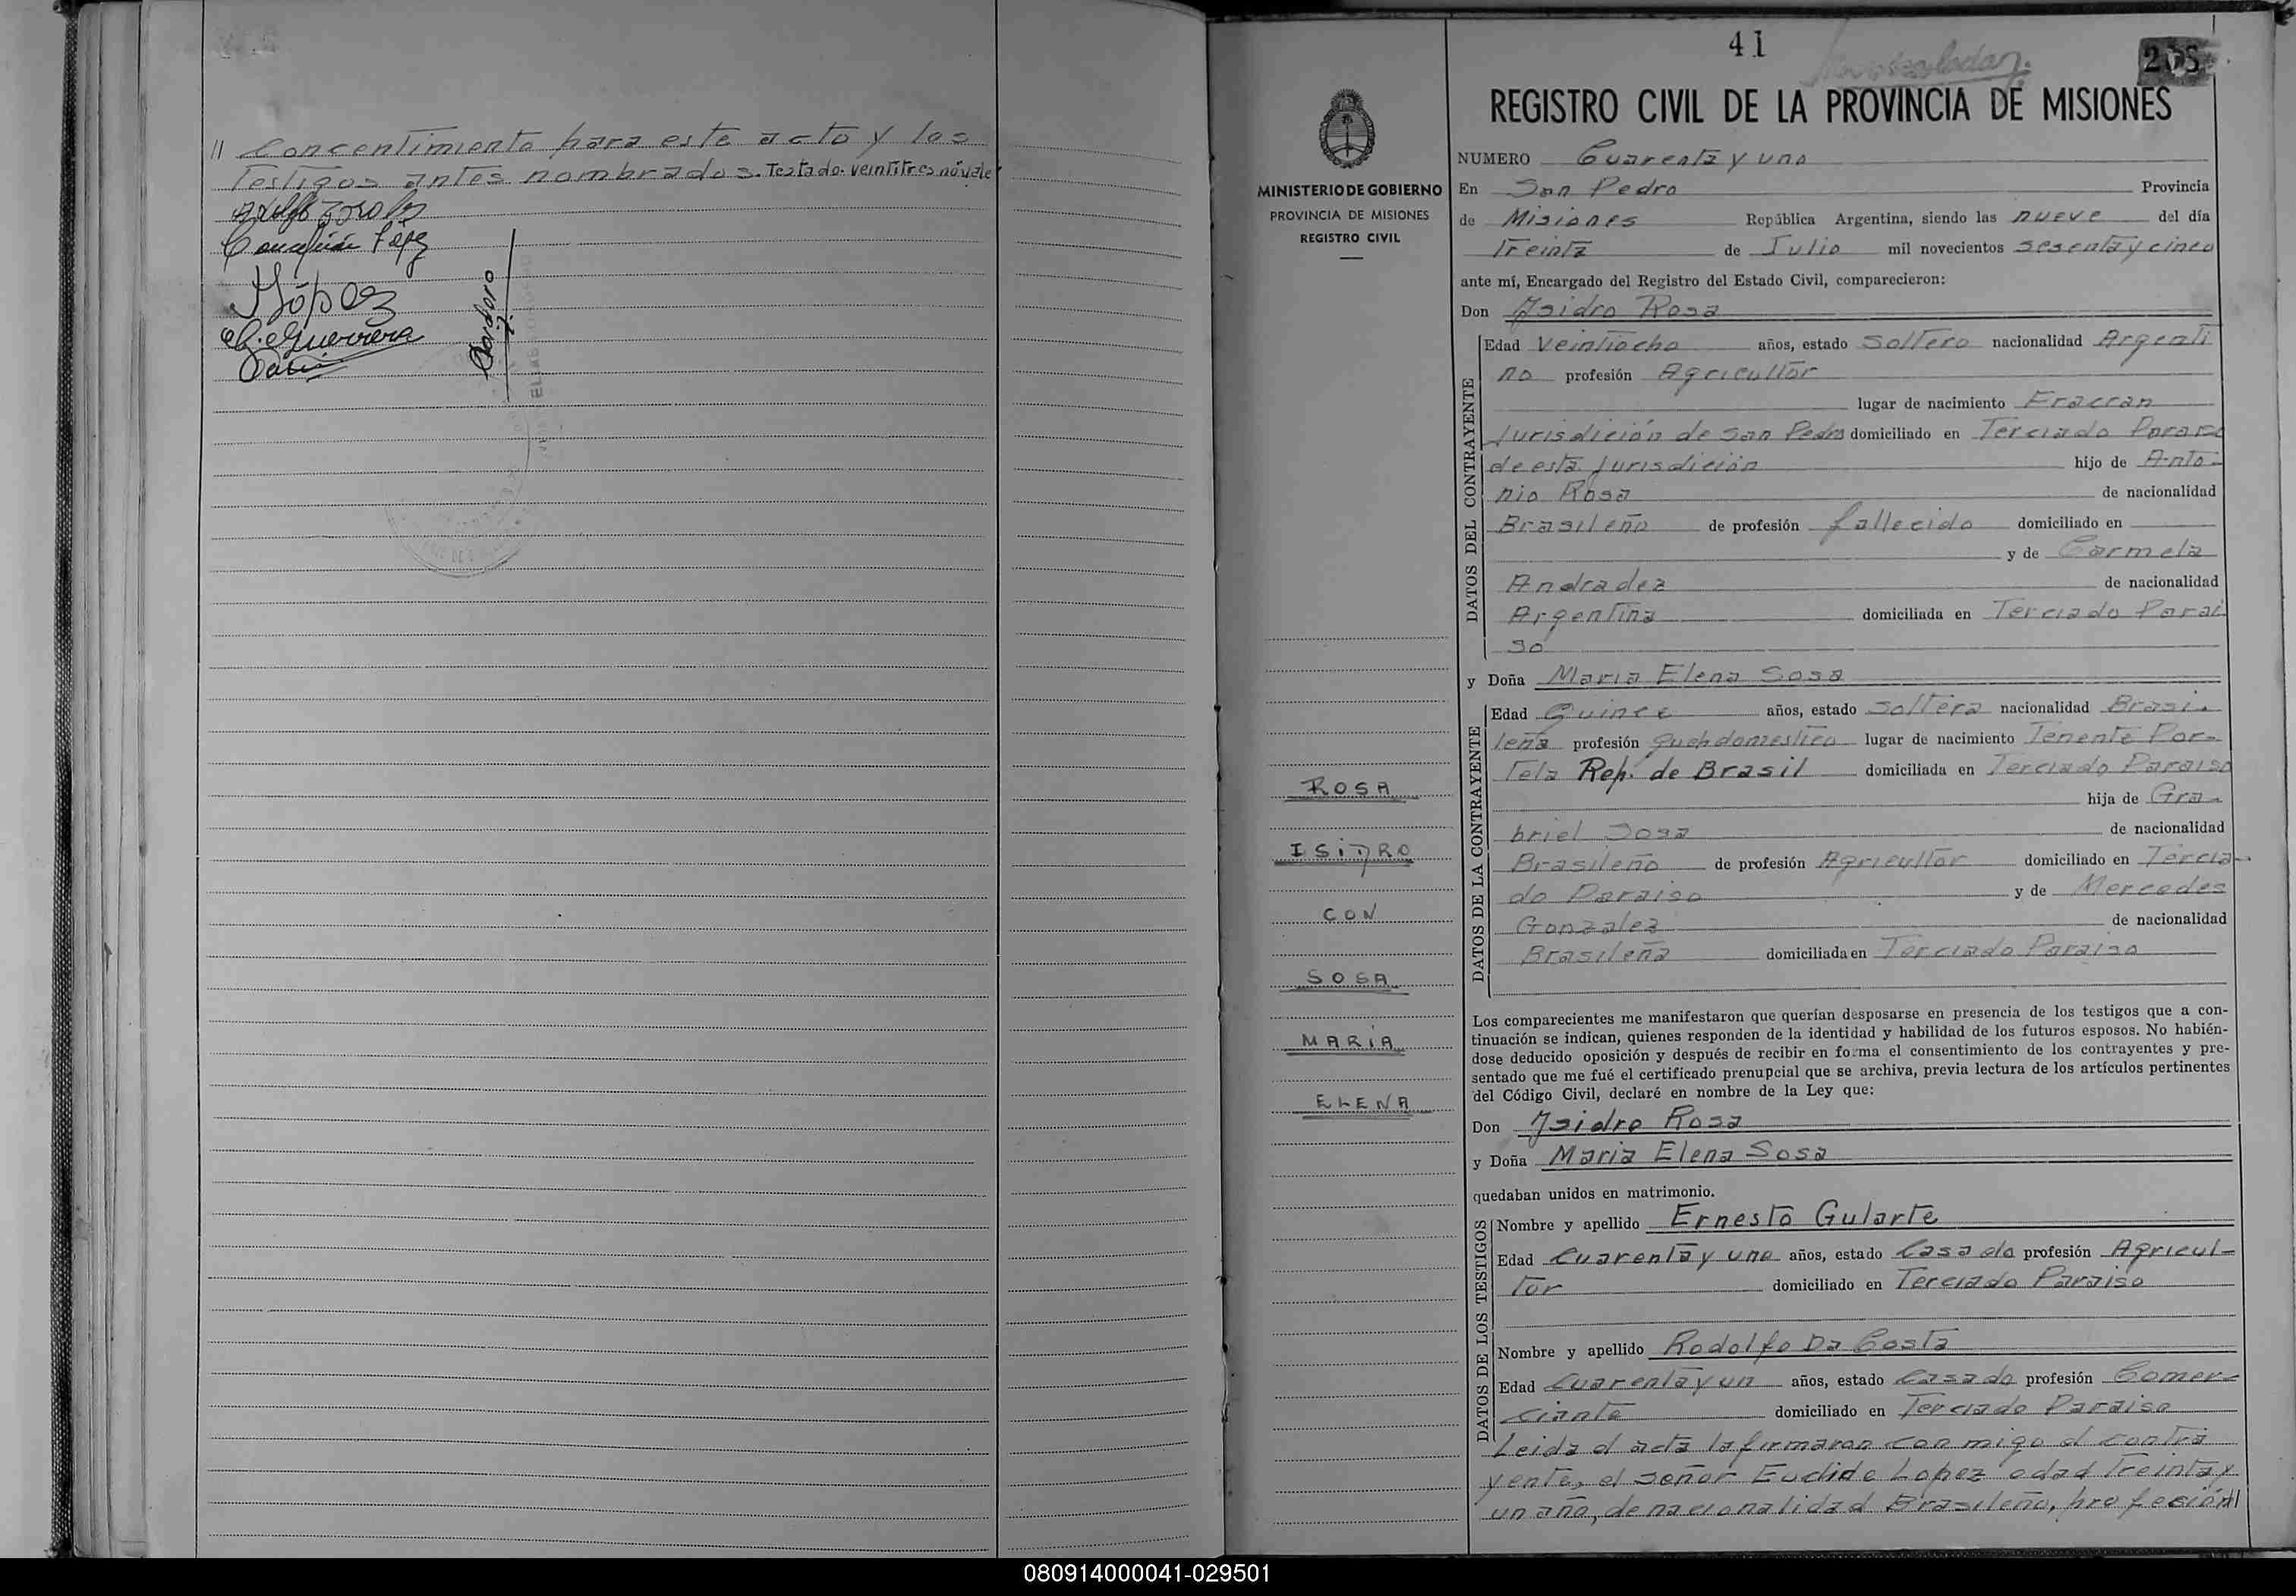 // Concentimiento para este acto y los
Testigos antes nombrados. Testado. veintitres no vale
Concepción López
López
Guerrero
41
205
REGISTRO CIVIL DE LA PROVINCIA DE MISIONES
MINISTERIO DE GOBIERNO
PROVINCIA DE MISIONES
REGISTRO CIVIL
ROSA
ISIDRO
CON
SOSA
MARÍA
ELENA
NUMERO Cuarenta y uno
En San Pedro Provincia
de Misiones República Argentina, siendo las nueve del día
Treinta de Julio mil novecientos sesenta y cinco
ante mí, Encargado del Registro del Estado Civil, comparecieron:
Don Ysidro Rosa
DATOS DEL CONTRAYENTE
Edad Veintiocho años, estado Soltero nacionalidad Argenti
no profesión Agricultor
lugar de nacimiento Fracran
Jurisdición de San Pedro domiciliado en Terciado Paraiso
de esta Jurisdición hijo de Anto-
nio Rosa de nacionalidad
Brasileño de profesión fallecido domiciliado en
y de Carmela
Andradez de nacionalidad
Argentina domiciliada en Terciado Parai
so
y Doña Maria Elena Sosa
DATOS DE LA CONTRAYENTE
Edad Quince años, estado Soltera nacionalidad Brasi-
leña profesión Queh domestico lugar de nacimiento Tenente Por-
Tela Rep. de Brasil domiciliada en Terciado Paraiso
hija de Gra-
briel Sosa de nacionalidad
Brasileño de profesión Agricultor domiciliado en Tercia-
do Paraiso y de Mercedes
Gonzalez de nacionalidad
Brasileña domiciliada en Terciado Paraiso
Los comparecientes me manifestaron que querían desposarse en presencia de los testigos que a con-
tinuación se indican, quienes responden de la identidad y habilidad de los futuros esposos. No habién-
dose deducido oposición y después de recibir en forma el consentimiento de los contrayentes y pre-
sentado que me fué el certificado prenupcial que se archiva, previa lectura de los artículos pertinentes
del Código Civil, declaré en nombre de la Ley que:
Don Ysidro Rosa
y Doña Maria Elena Sosa
quedaban unidos en matrimonio.
DATOS DE LOS TESTIGOS
Nombre y apellido Ernesto Gularte
Edad Cuarenta y uno años, estado Casado profesión Agricul-
Tor domiciliado en Terciado Paraiso
Nombre y apellido Rodolfo Da Costa
Edad Cuarenta y un años, estado Casado profesión Comer-
ciante domiciliado en Terciado Paraiso
Leida el acta la firmaron con migo el contra
yente, el señor Euclide Lopez edad Treinta y
un año, de nacionalidad Brasileño, profesión//
080914000041-029501